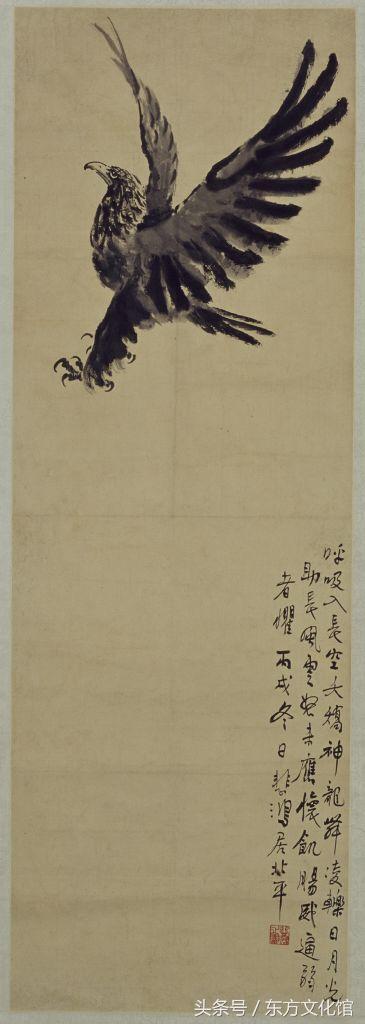 呼吸入長空夭矯神龍舞凌轢日月光
助長風雲怒未應懷飢腸威逼弱
者懼 丙戌冬日悲鴻居北平
头条号 / 东方文化馆